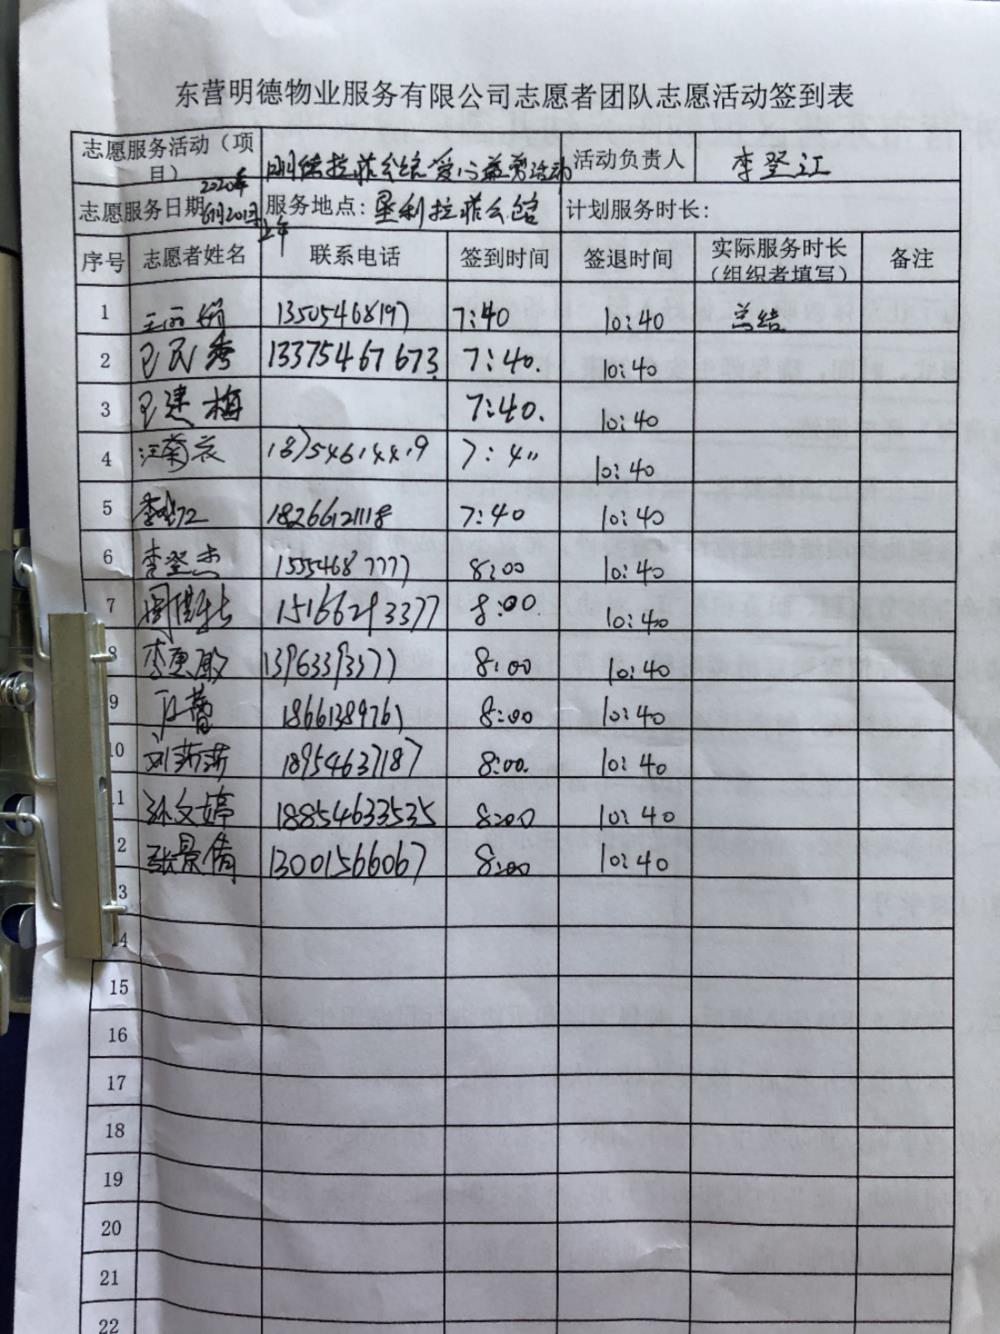 东营明德物业服务有限公司志愿者团队志愿活动签到表
志愿服务活动（项目） 明德拉菲公馆爱心义剪活动 活动负责人 李登江
志愿服务日期 2020年6月20日上午 服务地点：垦利拉菲公馆 计划服务时长：
序号 志愿者姓名 联系电话 签到时间 签退时间 实际服务时长（组织者填写） 备注
1 13505468197 7:40 10:40 总结
2 巴民秀 13375467673 7:40. 10:40
3 巴建梅 7:40. 10:40
4 汪菊花 18754614419 7:40 10:40
5 李登江 18266121118 7:40 10:40
6 李登杰 15554687777 8:00 10:40
7 15166293377 8:00 10:40
8 13963393377 8:00 10:40
9 18661389761 8:00 10:40
10 刘莎莎 18954637187 8:00. 10:40
11 孙文婷 18854633535 8:00 10:40
12 张景倩 13001566067 8:00 10:40
13
14
15
16
17
18
19
20
21
22